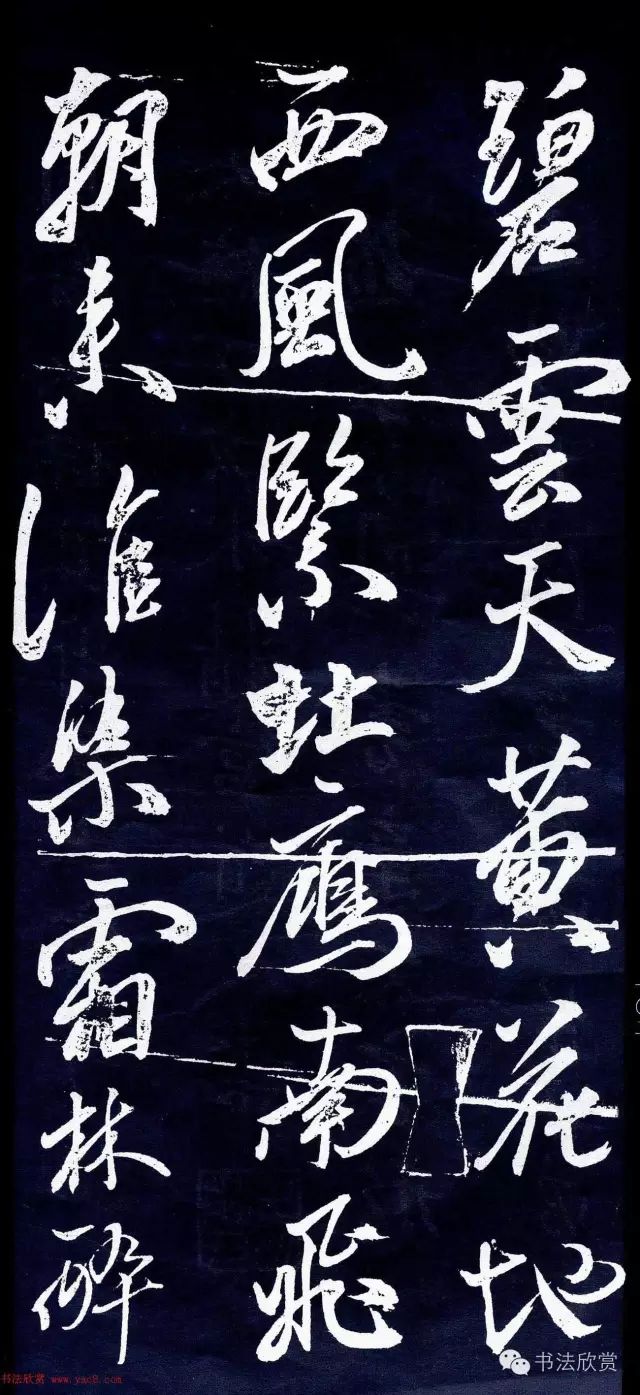 碧雲天黃花地
西風緊北鴈南飛
朝来誰染霜林醉
书法欣赏
书法欣赏 www.yac8.com